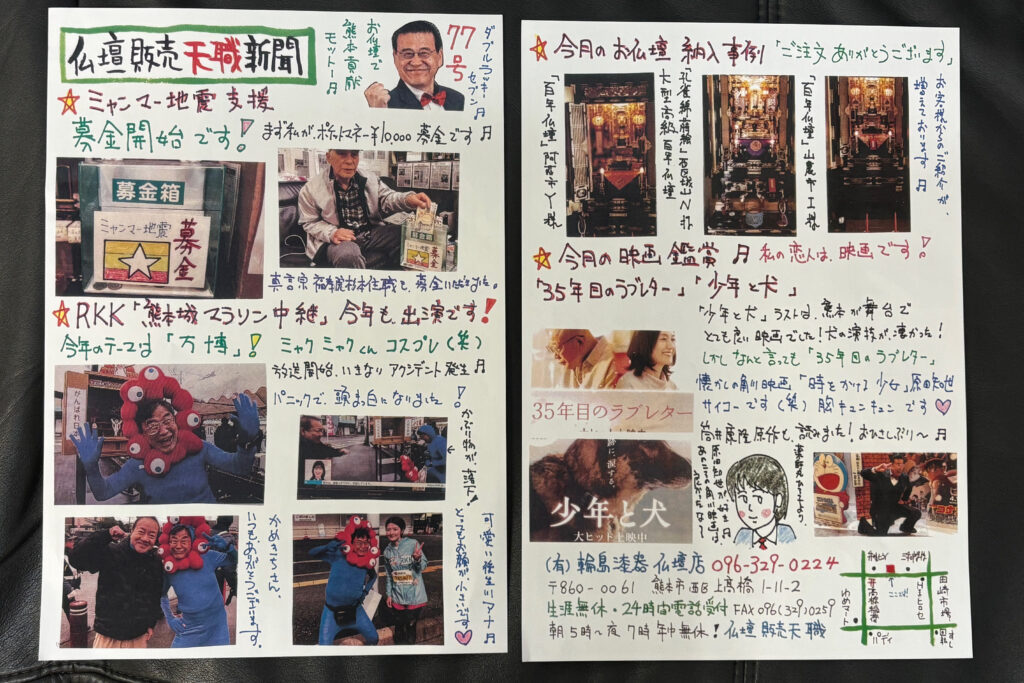 仏壇販売天職新聞
お仏壇で
熊本貢献
モットー♪
77号
ダブルラッキーセブン♪
☆ミャンマー地震支援
募金開始です! まず私がポケットマネー¥10000募金です♬
募金箱
ミャンマー地震
募金
募金箱
募金
☆RKK「熊本城マラソン中継」今年も、出演です!
今年のテーマは「万博」! ミャクミャクくん コスプレ(笑)
放送開始、いきなり アクシデント発生♬
パニックで、頭真白になりました!
がんばれ
かぶり物が落下!
かめきちさん、
いつもありがとうございます。
可愛い後生川アナ♬
とってもお顔が小さいです♡
☆今月のお仏壇 納入事例「ご注文ありがとうございます」
お客様からのご紹介が、
増えております。♬
「百年仏壇」山鹿市I様
大型高級百年仏壇
「百年仏壇」阿蘇市Y様
☆今月の映画鑑賞 ♬ 私の恋人は、映画です!
「35年目のラブレター」「少年と犬」
「少年と犬」ラストは、熊本が舞台で
とても良い映画でした!犬の演技が、凄かった!
しかしなんと言っても「35年目のラブレター」
懐かしの角川映画、「時をかける少女」原田知世
サイコーです(笑)胸キュンキュンです♡
35年目のラブレター
筒井康隆原作も、読みました!おひさしぶり〜♬
少年と犬
大ヒット上映中
(有)輪島漆器仏壇店 096-329-0224
〒860-0061 熊本市西区上高橋1-11-2
生涯無休・24時間電話受付 FAX096(329)0259
朝5時〜夜7時年中無休!仏壇販売天職
ここだ
田崎市場
ゆめマート